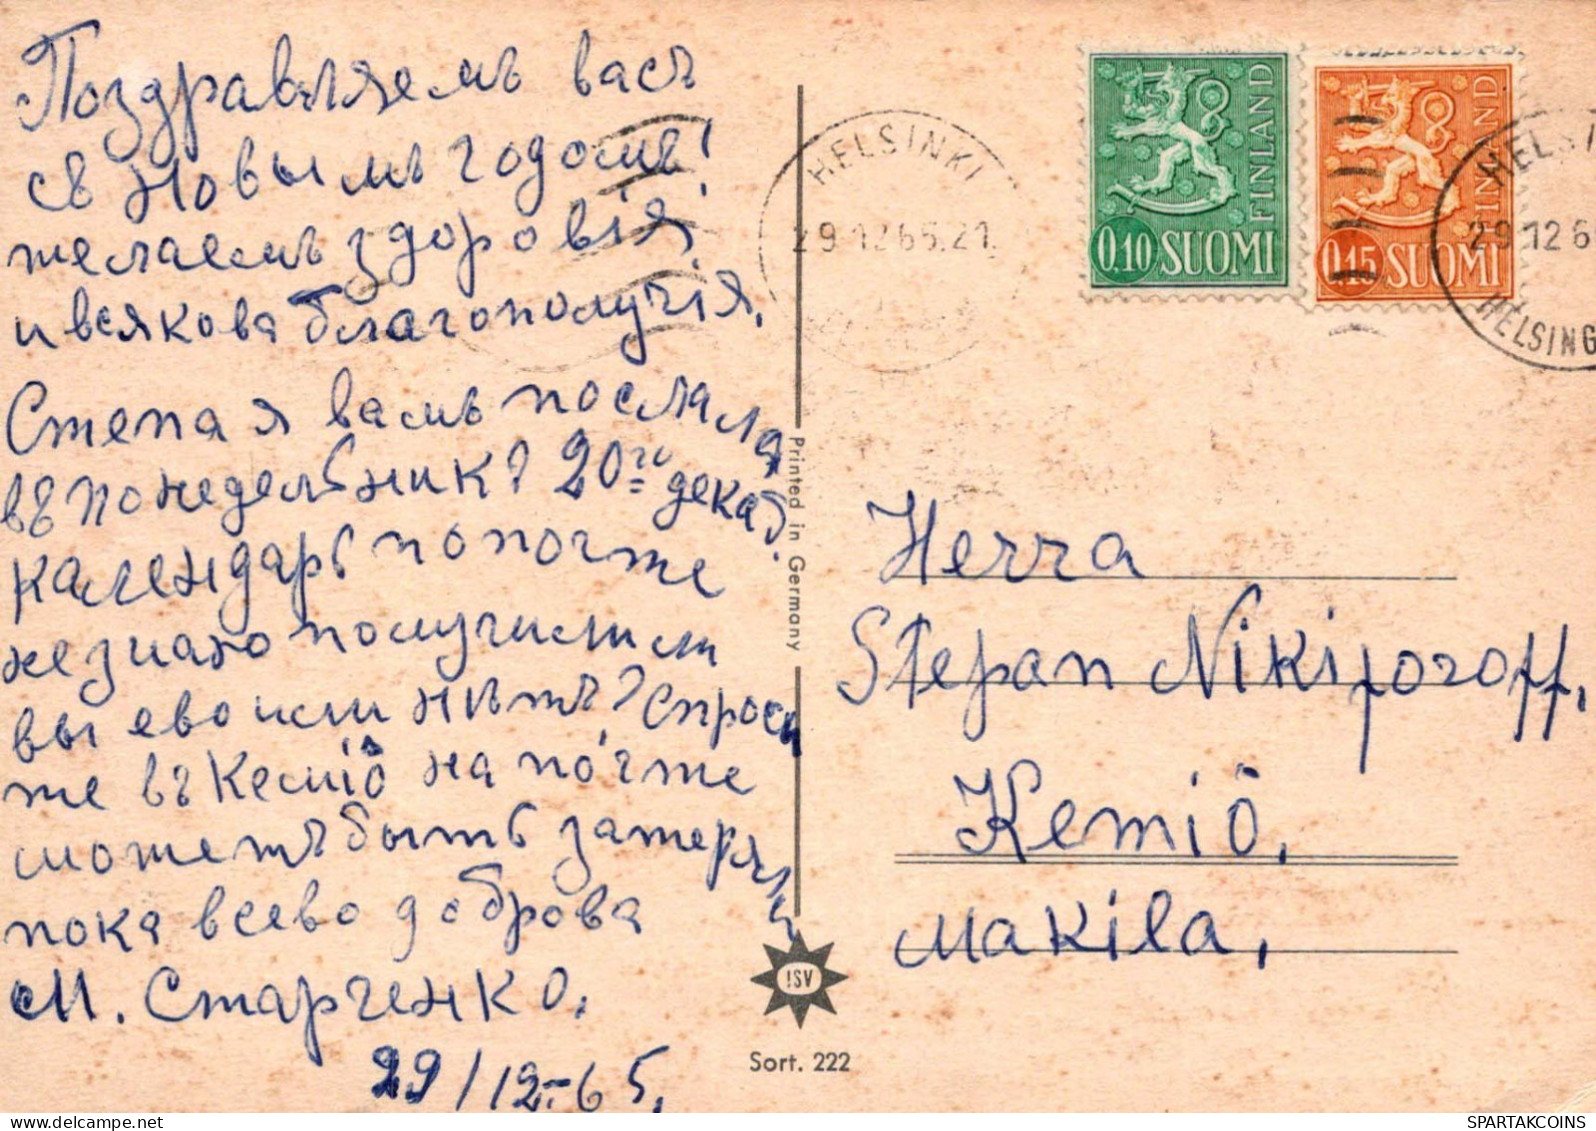 Поздравляемъ васъ
съ новымъ годомъ!
желаемъ здоровія
и всякова благополучія.
Степа я вамъ послала
въ понедельникъ 20го декаб.
календарь по почте
незнаю получили ли
вы ево или нѣтъ? Спроси
же въ Кеміö на почте
можетъ быть затерялси
пока всево доброва
М. Старченко.
29/12-65.
Printed in Germany
ISV
Sort. 222
HELSINKI
29.12.65.21.
0,10 SUOMI
FINLAND
0,15 SUOMI
FINLAND
HELSIN
29.12.6
HELSING
Herra
Stepan Nikiforoff,
Kemiö,
Makila,
SPARTAKCOINS